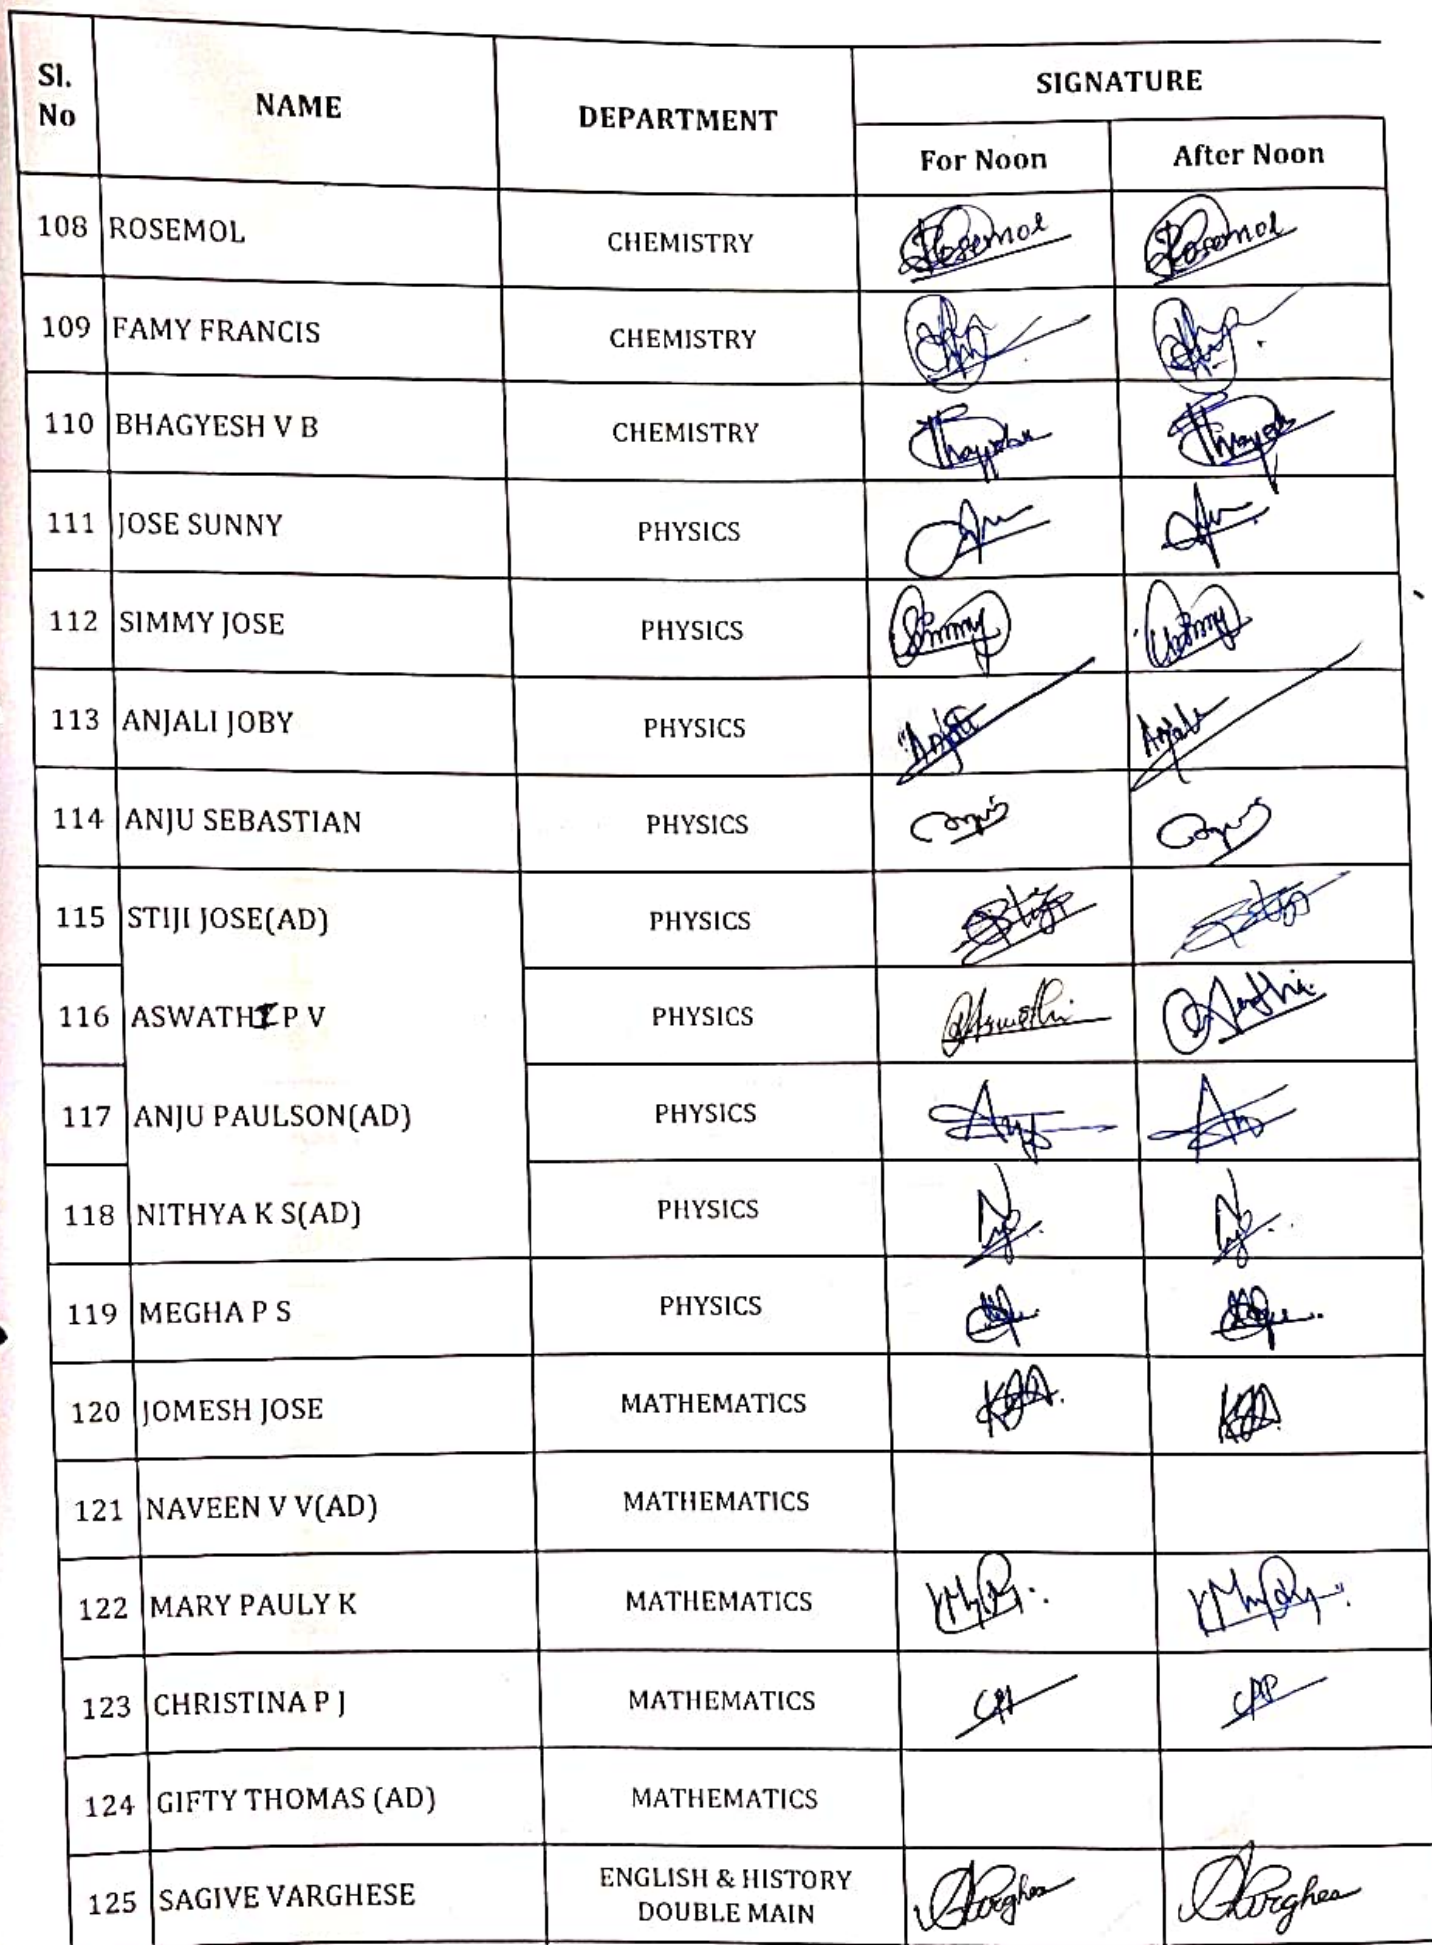 Sl. No NAME DEPARTMENT SIGNATURE
For Noon After Noon
108 ROSEMOL CHEMISTRY Rosemol Rosemol
109 FAMY FRANCIS CHEMISTRY
110 BHAGYESH V B CHEMISTRY
111 JOSE SUNNY PHYSICS
112 SIMMY JOSE PHYSICS Simmy Simmy
113 ANJALI JOBY PHYSICS Anjali Anjali
114 ANJU SEBASTIAN PHYSICS
115 STIJI JOSE(AD) PHYSICS
116 ASWATHI P V PHYSICS Aswathi
117 ANJU PAULSON(AD) PHYSICS
118 NITHYA K S(AD) PHYSICS
119 MEGHA P S PHYSICS
120 JOMESH JOSE MATHEMATICS
121 NAVEEN V V(AD) MATHEMATICS
122 MARY PAULY K MATHEMATICS
123 CHRISTINA P J MATHEMATICS
124 GIFTY THOMAS (AD) MATHEMATICS
125 SAGIVE VARGHESE ENGLISH & HISTORY
DOUBLE MAIN